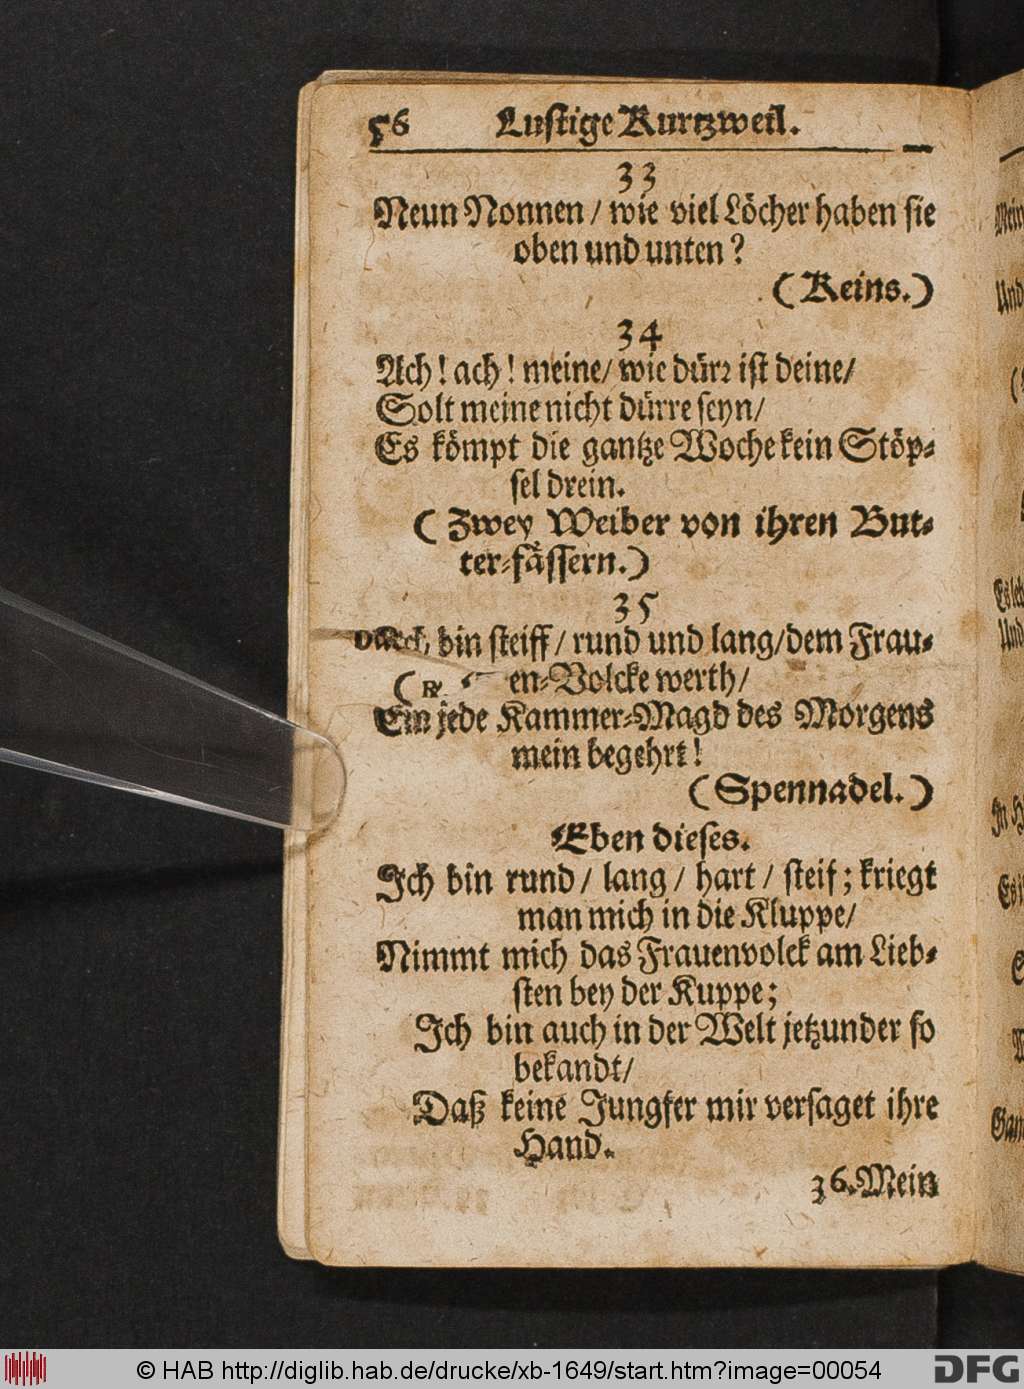 56 Lustige Kurtzweil.
33
Neun Nonnen / wie viel Löcher haben sie
oben und unten?
(Keins.)
34
Ach! ach! meine/ wie dürꝛ ist deine/
Solt meine nicht dürre seyn/
Es kömpt die gantze Woche kein Stöp-
sel drein.
(Zwey Weiber von ihren But-
ter-fässern.)
35
bin steiff/ rund und lang/ dem Frau-
en-Volcke werth/
Ein jede Kammer-Magd des Morgens
mein begehrt!
(Spennadel.)
Eben dieses.
Ich bin rund/ lang/ hart/ steif; kriegt
man mich in die Kluppe/
Nimmt mich das Frauenvolck am Lieb-
sten bey der Kuppe;
Ich bin auch in der Welt jetzunder so
bekandt/
Daß keine Jungfer mir versaget ihre
Hand.
36. Mein
© HAB http://diglib.hab.de/drucke/xb-1649/start.htm?image=00054
DFG